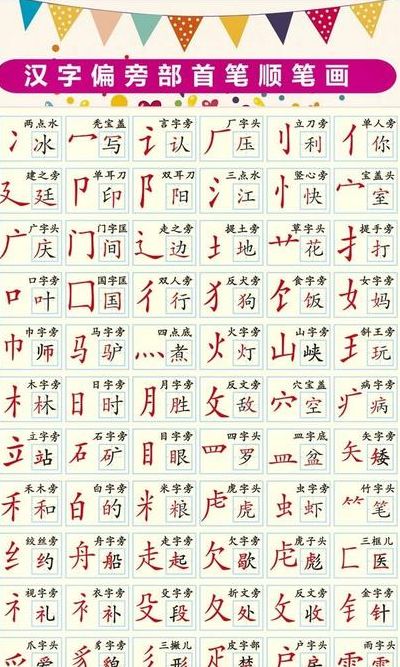 汉字偏旁部首笔顺笔画
两点水 秃宝盖 言字旁 厂字头 立刀旁 单人旁
冫冰 冖写 讠认 厂压 刂利 亻你
建之旁 单耳刀 双耳刀 三点水 竖心旁 宝盖头
廴廷 卩印 阝阳 氵江 忄快 宀室
广字头 门字匡 走之旁 提土旁 草字头 提手旁
广庆 门间 辶边 土地 艹花 扌打
口字旁 国字匡 双人旁 反犬旁 食字旁 女字旁
口叶 囗国 彳行 犭狗 饣饭 女妈
巾字旁 马字旁 四点底 火字旁 山字旁 斜王旁
巾师 马驴 灬煮 火灯 山峡 王玩
木字旁 日字旁 月字旁 反文旁 穴宝盖 病字旁
木林 日时 月胜 攵敌 穴空 疒病
立字旁 石字旁 目字旁 四字头 皿字底 矢字旁
立站 石矿 目眼 罒罗 皿盆 矢矮
禾木旁 白字旁 米字旁 虎字头 虫字旁 竹字头
禾和 白的 米粮 虍虎 虫虾 ⺮笔
绞丝旁 舟字旁 走字旁 欠字旁 虎子头 三框儿
纟约 舟船 走起 欠歇 虎彪 匚医
视字旁 衣字旁 殳字旁 折文旁 反文旁 金字旁
礻礼 衤补 殳段 夂处 攵收 钅针
爪字头 三撇儿 皮字部 户字头 雨字头